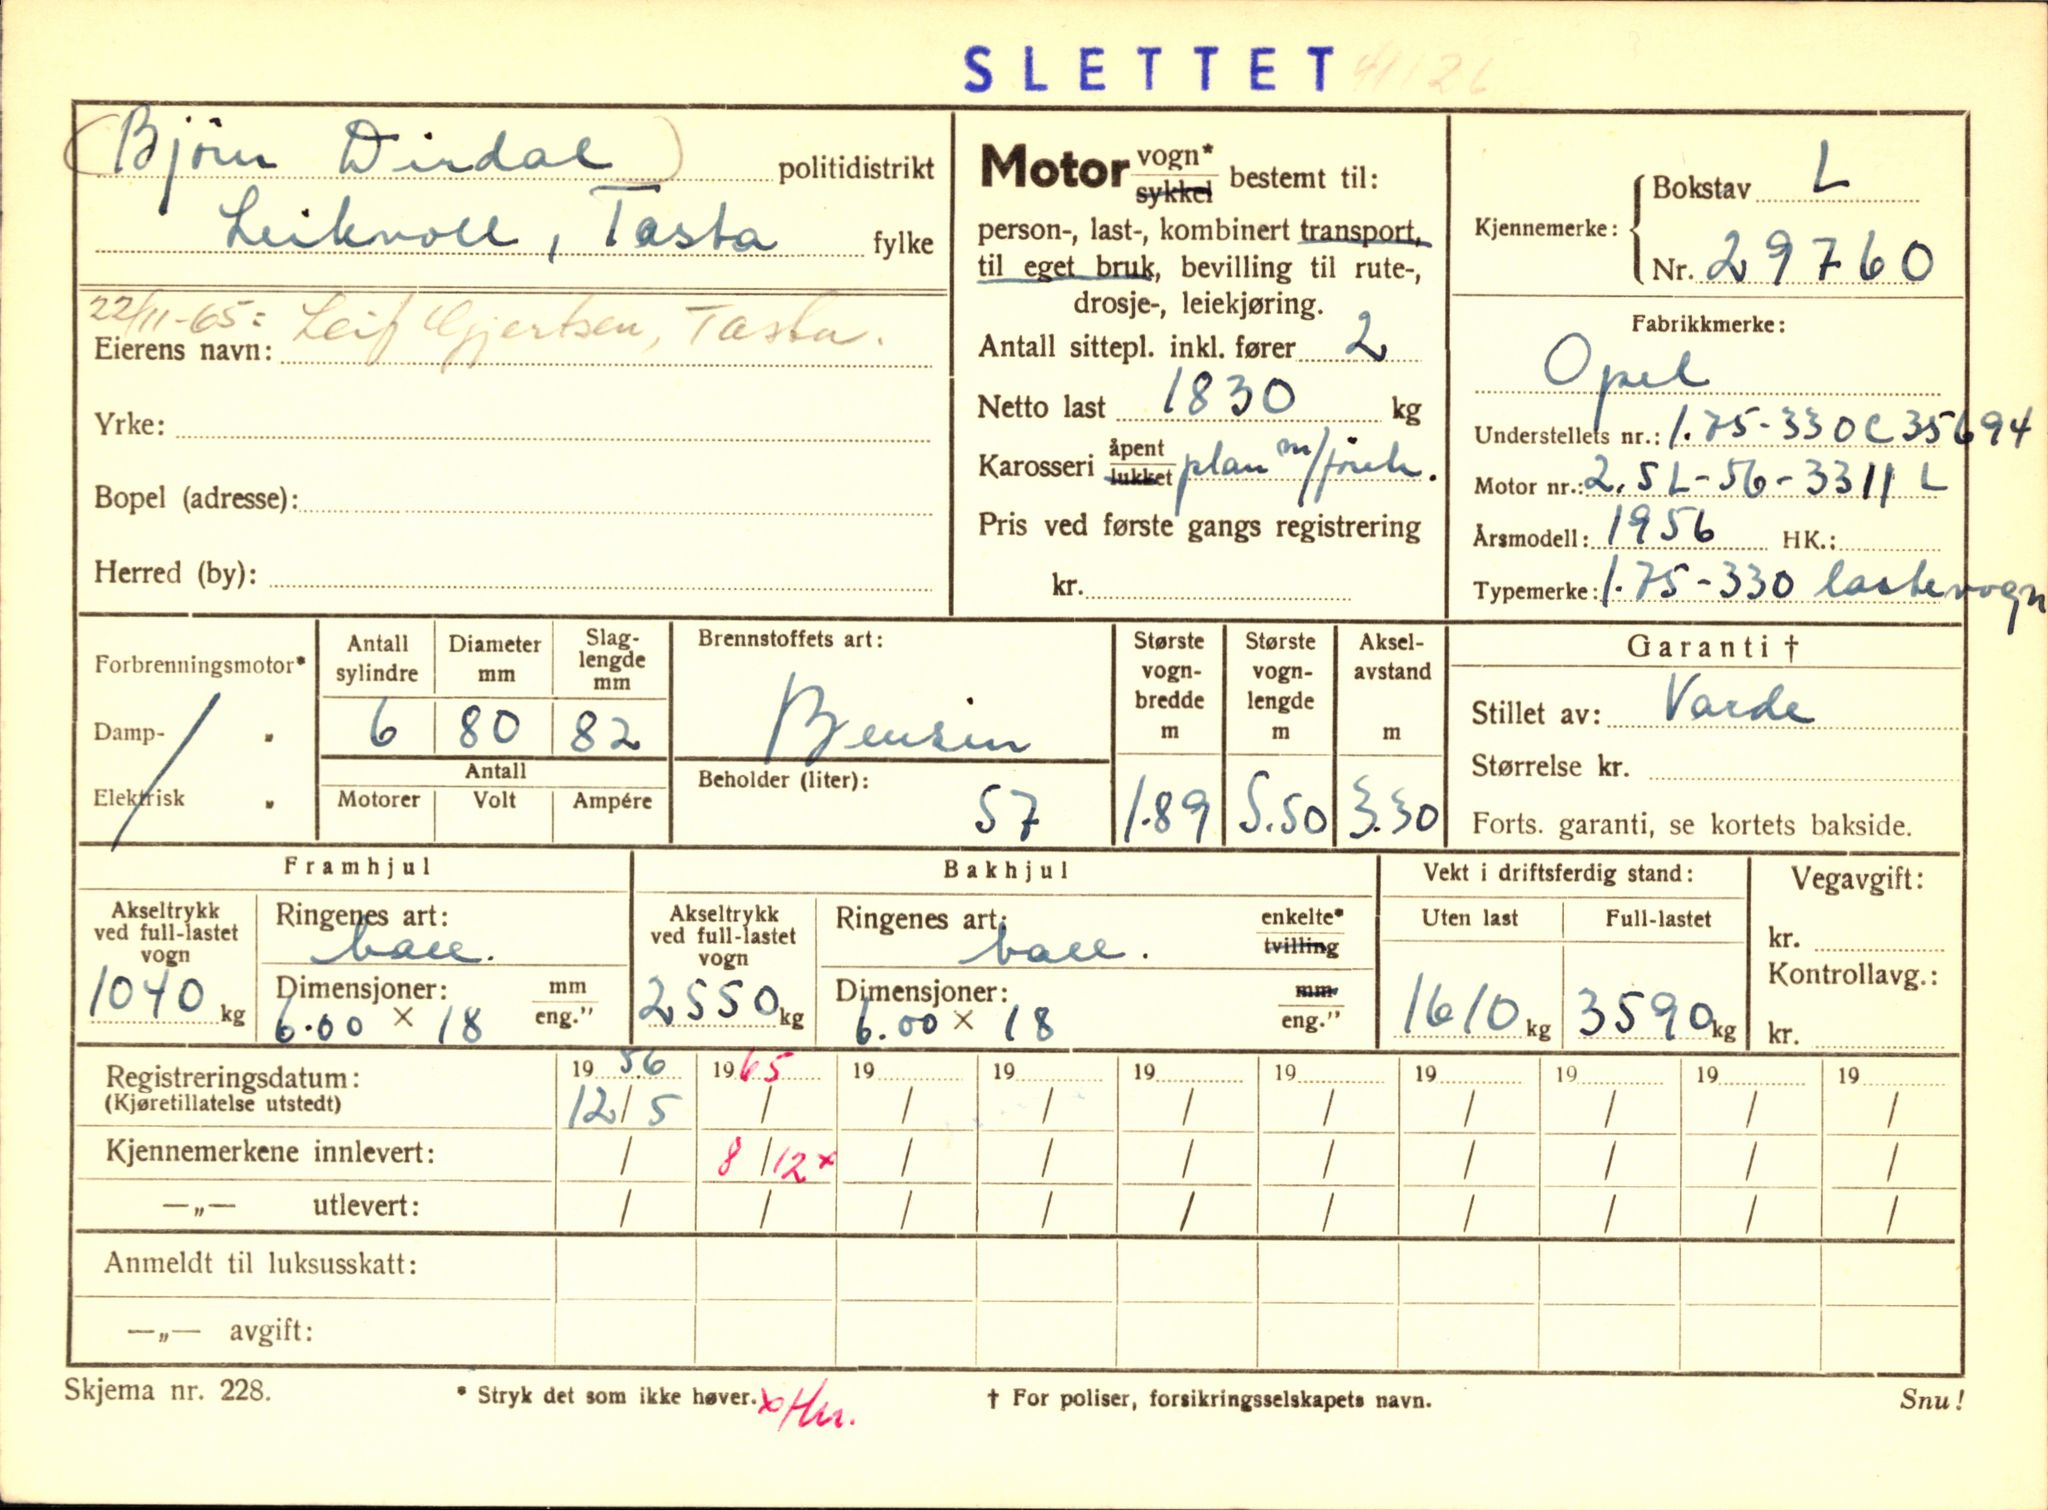 SLETTET
(Bjørn Dirdal) politidistrikt
Leiknvoll, Tasta fylke
22/11-65: Leif Gjertsen, Tasta.
Eierens navn:
Yrke:
Bopel (adresse):
Herred (by):
Motor vogn* sykkel bestemt til:
person-, last-, kombinert transport,
til eget bruk, bevilling til rute-,
drosje-, leiekjøring.
Antall sittepl. inkl. fører 2
Netto last 1830 kg
Karosseri åpent lukket plan m/førerh.
Pris ved første gangs registrering
kr.
Kjennemerke: Bokstav L
Nr. 29760
Fabrikkmerke:
Opel
Understellets nr.: 1.75-330C35694
Motor nr.: 2,5L-56-3311 L
Årsmodell: 1956 HK.:
Typemerke: 1.75-330 lastevogn
Forbrenningsmotor*
Damp- „
Elektrisk „
Antall sylindre Diameter mm Slag-lengde mm
6 80 82
Antall
Motorer Volt Ampére
Brennstoffets art:
Bensin
Beholder (liter):
57
Største vogn-bredde m
1.89
Største vogn-lengde m
5.50
Aksel-avstand m
3.30
Garanti †
Stillet av: Varde
Størrelse kr.
Forts. garanti, se kortets bakside.
Framhjul
Akseltrykk ved full-lastet vogn
1040 kg
Ringenes art:
ball.
Dimensjoner: mm eng."
6.00 × 18
Bakhjul
Akseltrykk ved full-lastet vogn
2550 kg
Ringenes art: enkelte* tvilling
ball.
Dimensjoner: mm eng."
6.00 × 18
Vekt i driftsferdig stand:
Uten last Full-lastet
1610 kg 3590 kg
Vegavgift:
kr.
Kontrollavg.:
kr.
Registreringsdatum: 19 56 19 65 19 19 19 19 19 19 19 19
(Kjøretillatelse utstedt) 12/5 / / / / / / / / /
Kjennemerkene innlevert: / 8/12× / / / / / / / /
—„— utlevert: / / / / / / / / / /
Anmeldt til luksusskatt:
—„— avgift:
Skjema nr. 228. * Stryk det som ikke høver. † For poliser, forsikringsselskapets navn. Snu!